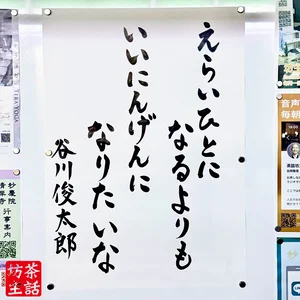 えらいひとに
なるよりも
いいにんげんに
なりたいな
谷川俊太郎
坊主
茶話
音声
毎朝
YOGA
行事案内